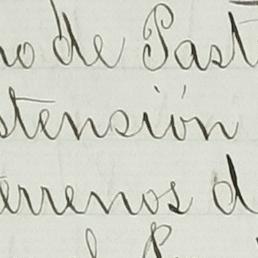 no de Past
stensiòn
terrenos d